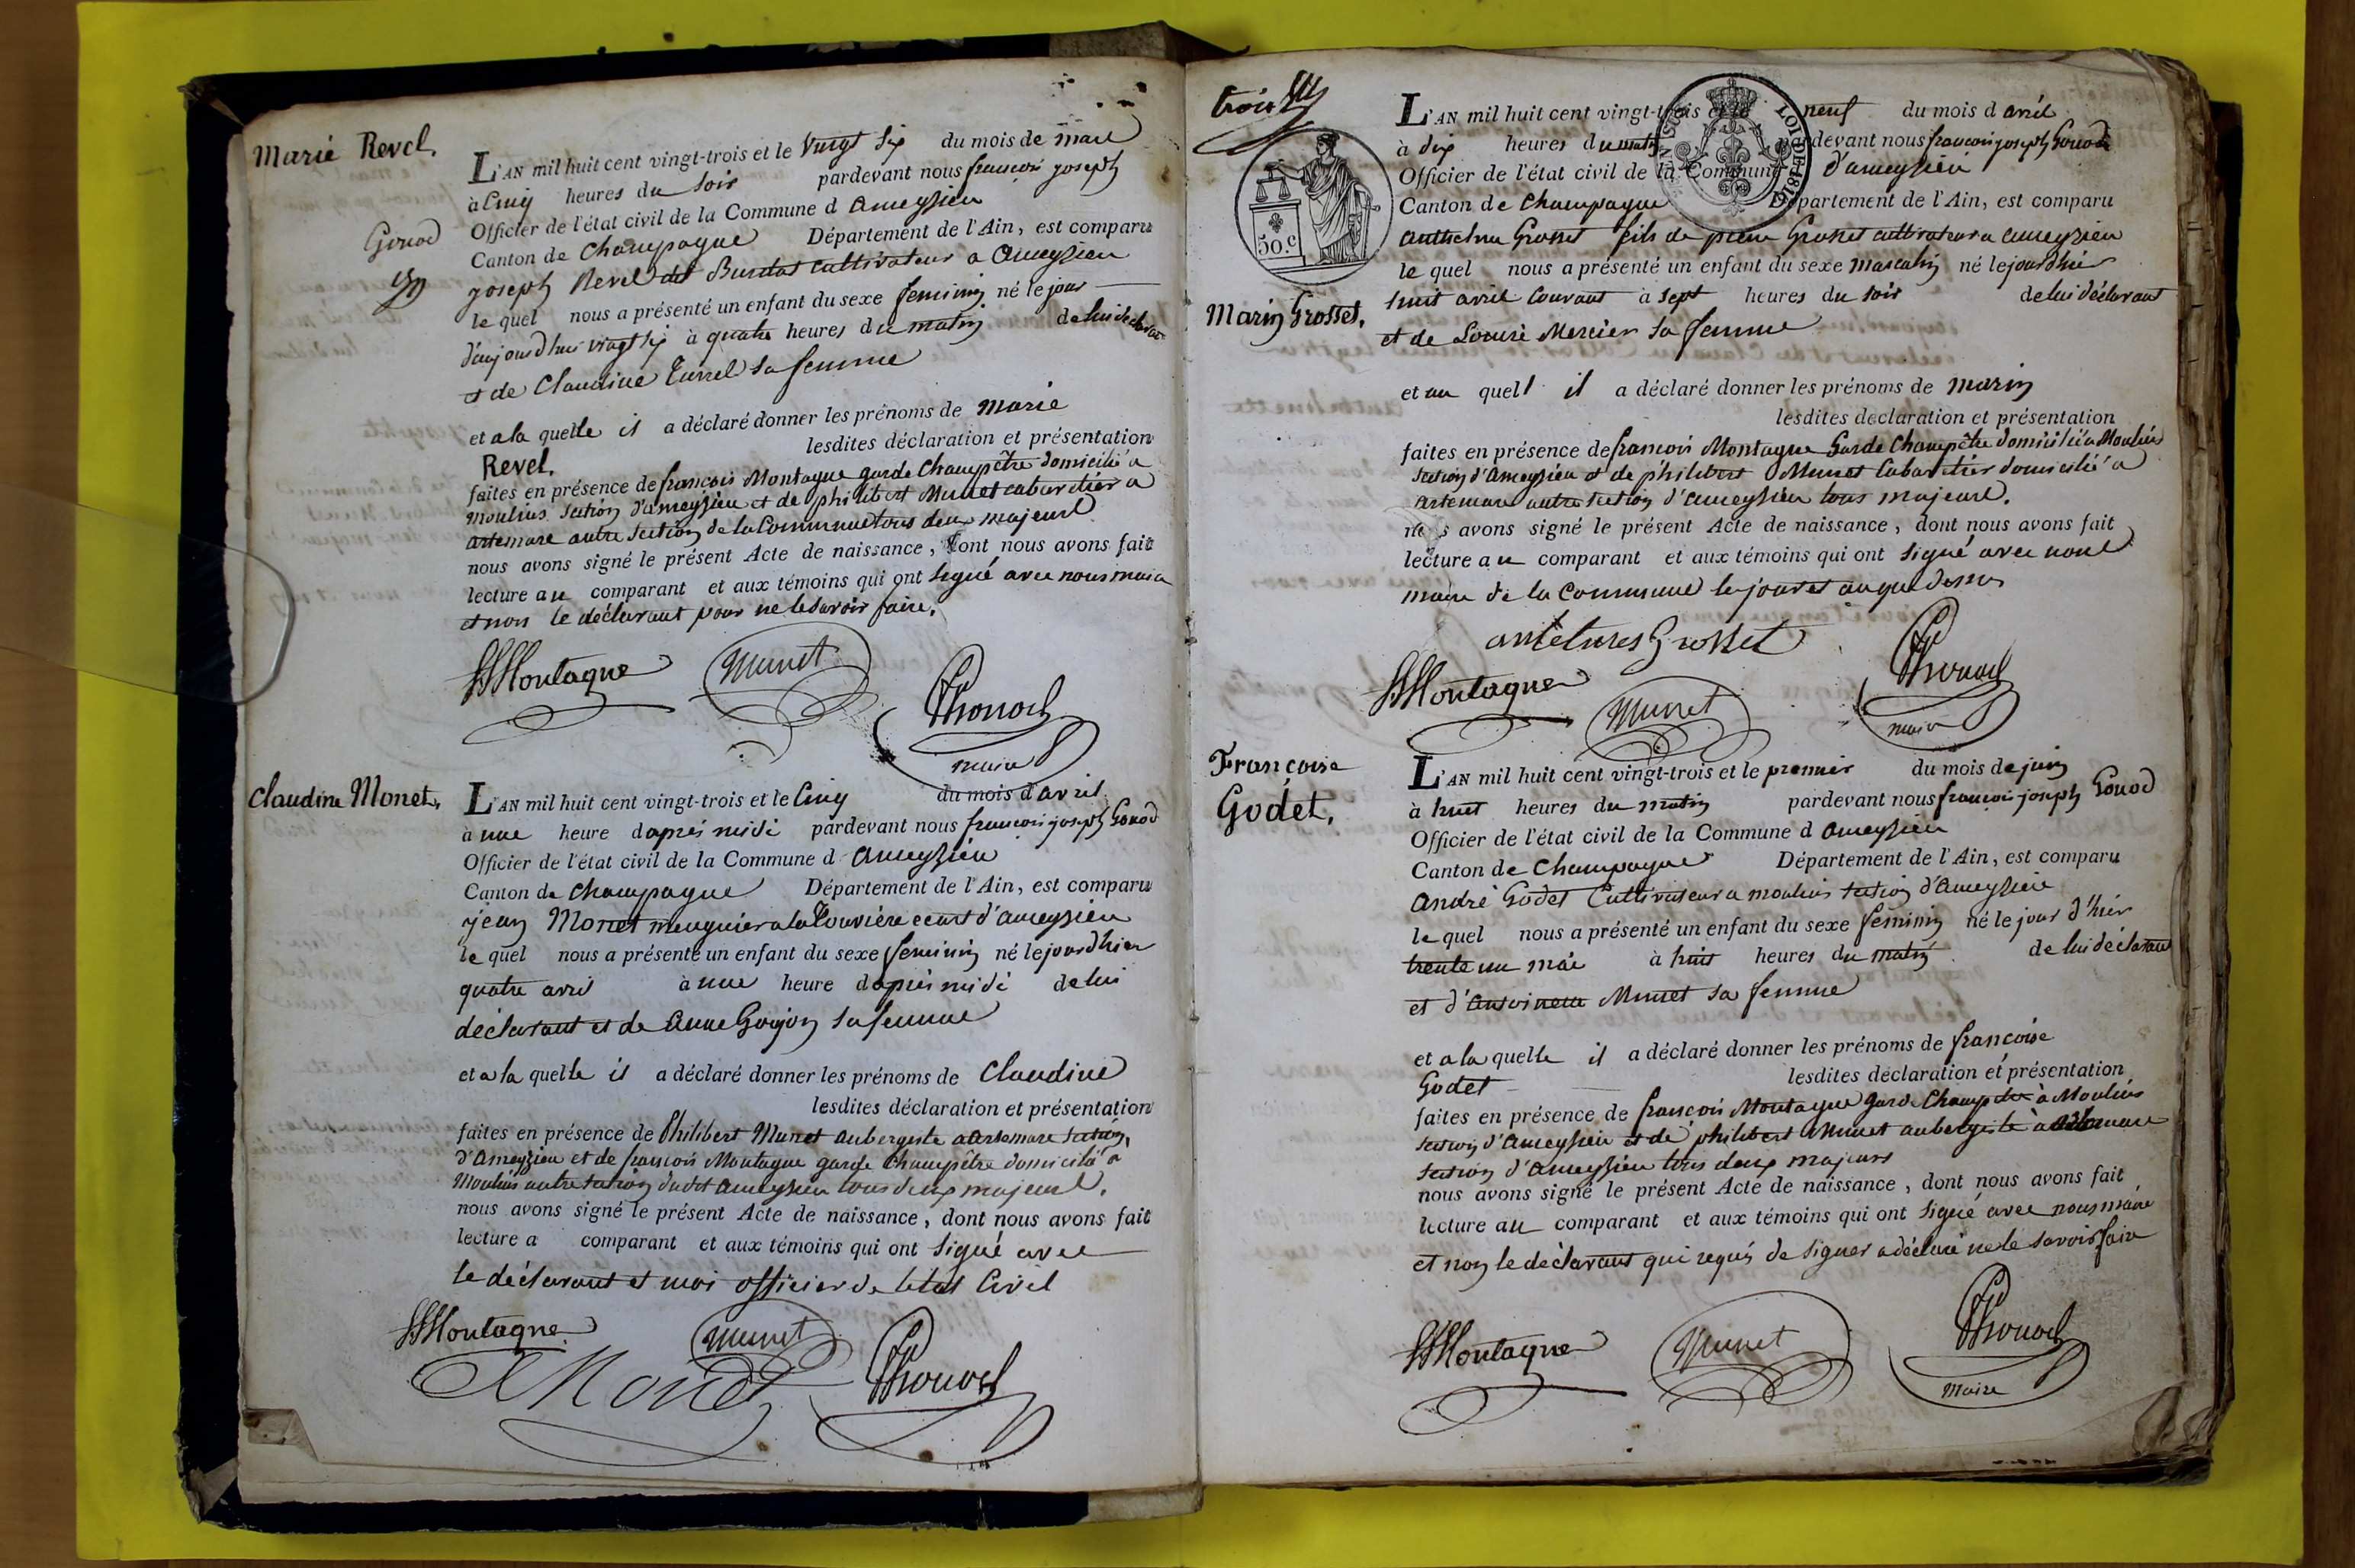 Marie Revel.
Gonod
L'AN mil huit cent vingt-trois et le vingt six du mois de mars
à cinq heures du soir pardevant nous françois joseph
Officier de l'état civil de la Commune d'ameyzieu
Canton de Champagne Département de l'Ain, est comparu
joseph Revel dit cultivateur a ameyzieu
le quel nous a présenté un enfant du sexe feminin né le jour
d'aujourd'hui vingt six à quatre heures du matin de lui déclarant
et de Claudine Turrel sa femme
et a la quelle il a déclaré donner les prénoms de marie
lesdites déclaration et présentation
Revel.
faites en présence de françois Montagne garde champêtre domicilié a
moulins section d'ameyzieu et de philibert Munet cabaretier a
artemare autre section de la Commune tous deux majeurs
nous avons signé le présent Acte de naissance, dont nous avons fait
lecture au comparant et aux témoins qui ont signé avec nous maire
et non le déclarant pour ne le savoir faire.
Montagne Munet Gonod
maire
Claudine Monet.
L'AN mil huit cent vingt-trois et le cinq du mois d'avril
à une heure d'après midi pardevant nous françois joseph Gonod
Officier de l'état civil de la Commune d ameyzieu
Canton de Champagne Département de l'Ain, est comparu
jean Monet meugnier a la Louvière ecart d'ameyzieu
le quel nous a présenté un enfant du sexe feminin né le jour d'hier
quatre avril à une heure d'après midi de lui
déclarant et de anne Goujon sa femme
et a la quelle il a déclaré donner les prénoms de Claudine
lesdites déclaration et présentation
faites en présence de Philibert Munet aubergiste a artemare section
d'Ameyzieu et de françois Montagne garde champêtre domicilié a
Moulins autre section dudit ameyzieu tous deux majeurs.
nous avons signé le présent Acte de naissance, dont nous avons fait
lecture a comparant et aux témoins qui ont signé avec
le déclarant et moi officier de l'état civil
Montagne Munet
Monet Gonod
trois
INSU LOI DE 181
50.c
L'AN mil huit cent vingt-trois et le neuf du mois d avril
à dix heures du matin pardevant nous françois joseph Gonod
Officier de l'état civil de la Commune d'ameyzieu
Canton de Champagne Département de l'Ain, est comparu
anthelme Grosset fils de pierre Grosset cultivateur a ameyzieu
le quel nous a présenté un enfant du sexe masculin né le jour d'hier
Marin Grosset.
huit avril courant à sept heures du soir de lui déclarant
et de Louise Mercier sa femme
et au quel il a déclaré donner les prénoms de marin
lesdites déclaration et présentation
faites en présence de françois Montagne Garde Champêtre domicilié a Moulins
section d'Ameyzieu et de philibert Munet Cabaretier domicilié a
artemare autre section d'ameyzieu tous majeurs.
nous avons signé le présent Acte de naissance, dont nous avons fait
lecture au comparant et aux témoins qui ont signé avec nous
maire de la Commune les jour et an que dessus
antelmes Grosset
Montagne Munet Gonod
maire
Françoise
Godet.
L'AN mil huit cent vingt-trois et le premier du mois de juin
à huit heures du matin pardevant nous françois joseph Gonod
Officier de l'état civil de la Commune d ameyzieu
Canton de Champagne Département de l'Ain, est comparu
andré Godet Cultivateur a moulins section d'Ameyzieu
le quel nous a présenté un enfant du sexe féminin né le jour d'hier
trente un mai à huit heures du matin de lui déclarant
et d'antoinette Munet sa femme
et a la quelle il a déclaré donner les prénoms de françoise
Godet lesdites déclaration et présentation
faites en présence de françois Montagne garde champêtre à Moulins
section d'Ameyzieu et de philibert Munet aubergiste à artemare
section d'ameyzieu tous deux majeurs
nous avons signé le présent Acte de naissance, dont nous avons fait
lecture au comparant et aux témoins qui ont signé avec nous maire
et non le déclarant qui requis de signer a déclaré ne le savoir faire
Montagne Munet Gonod
maire